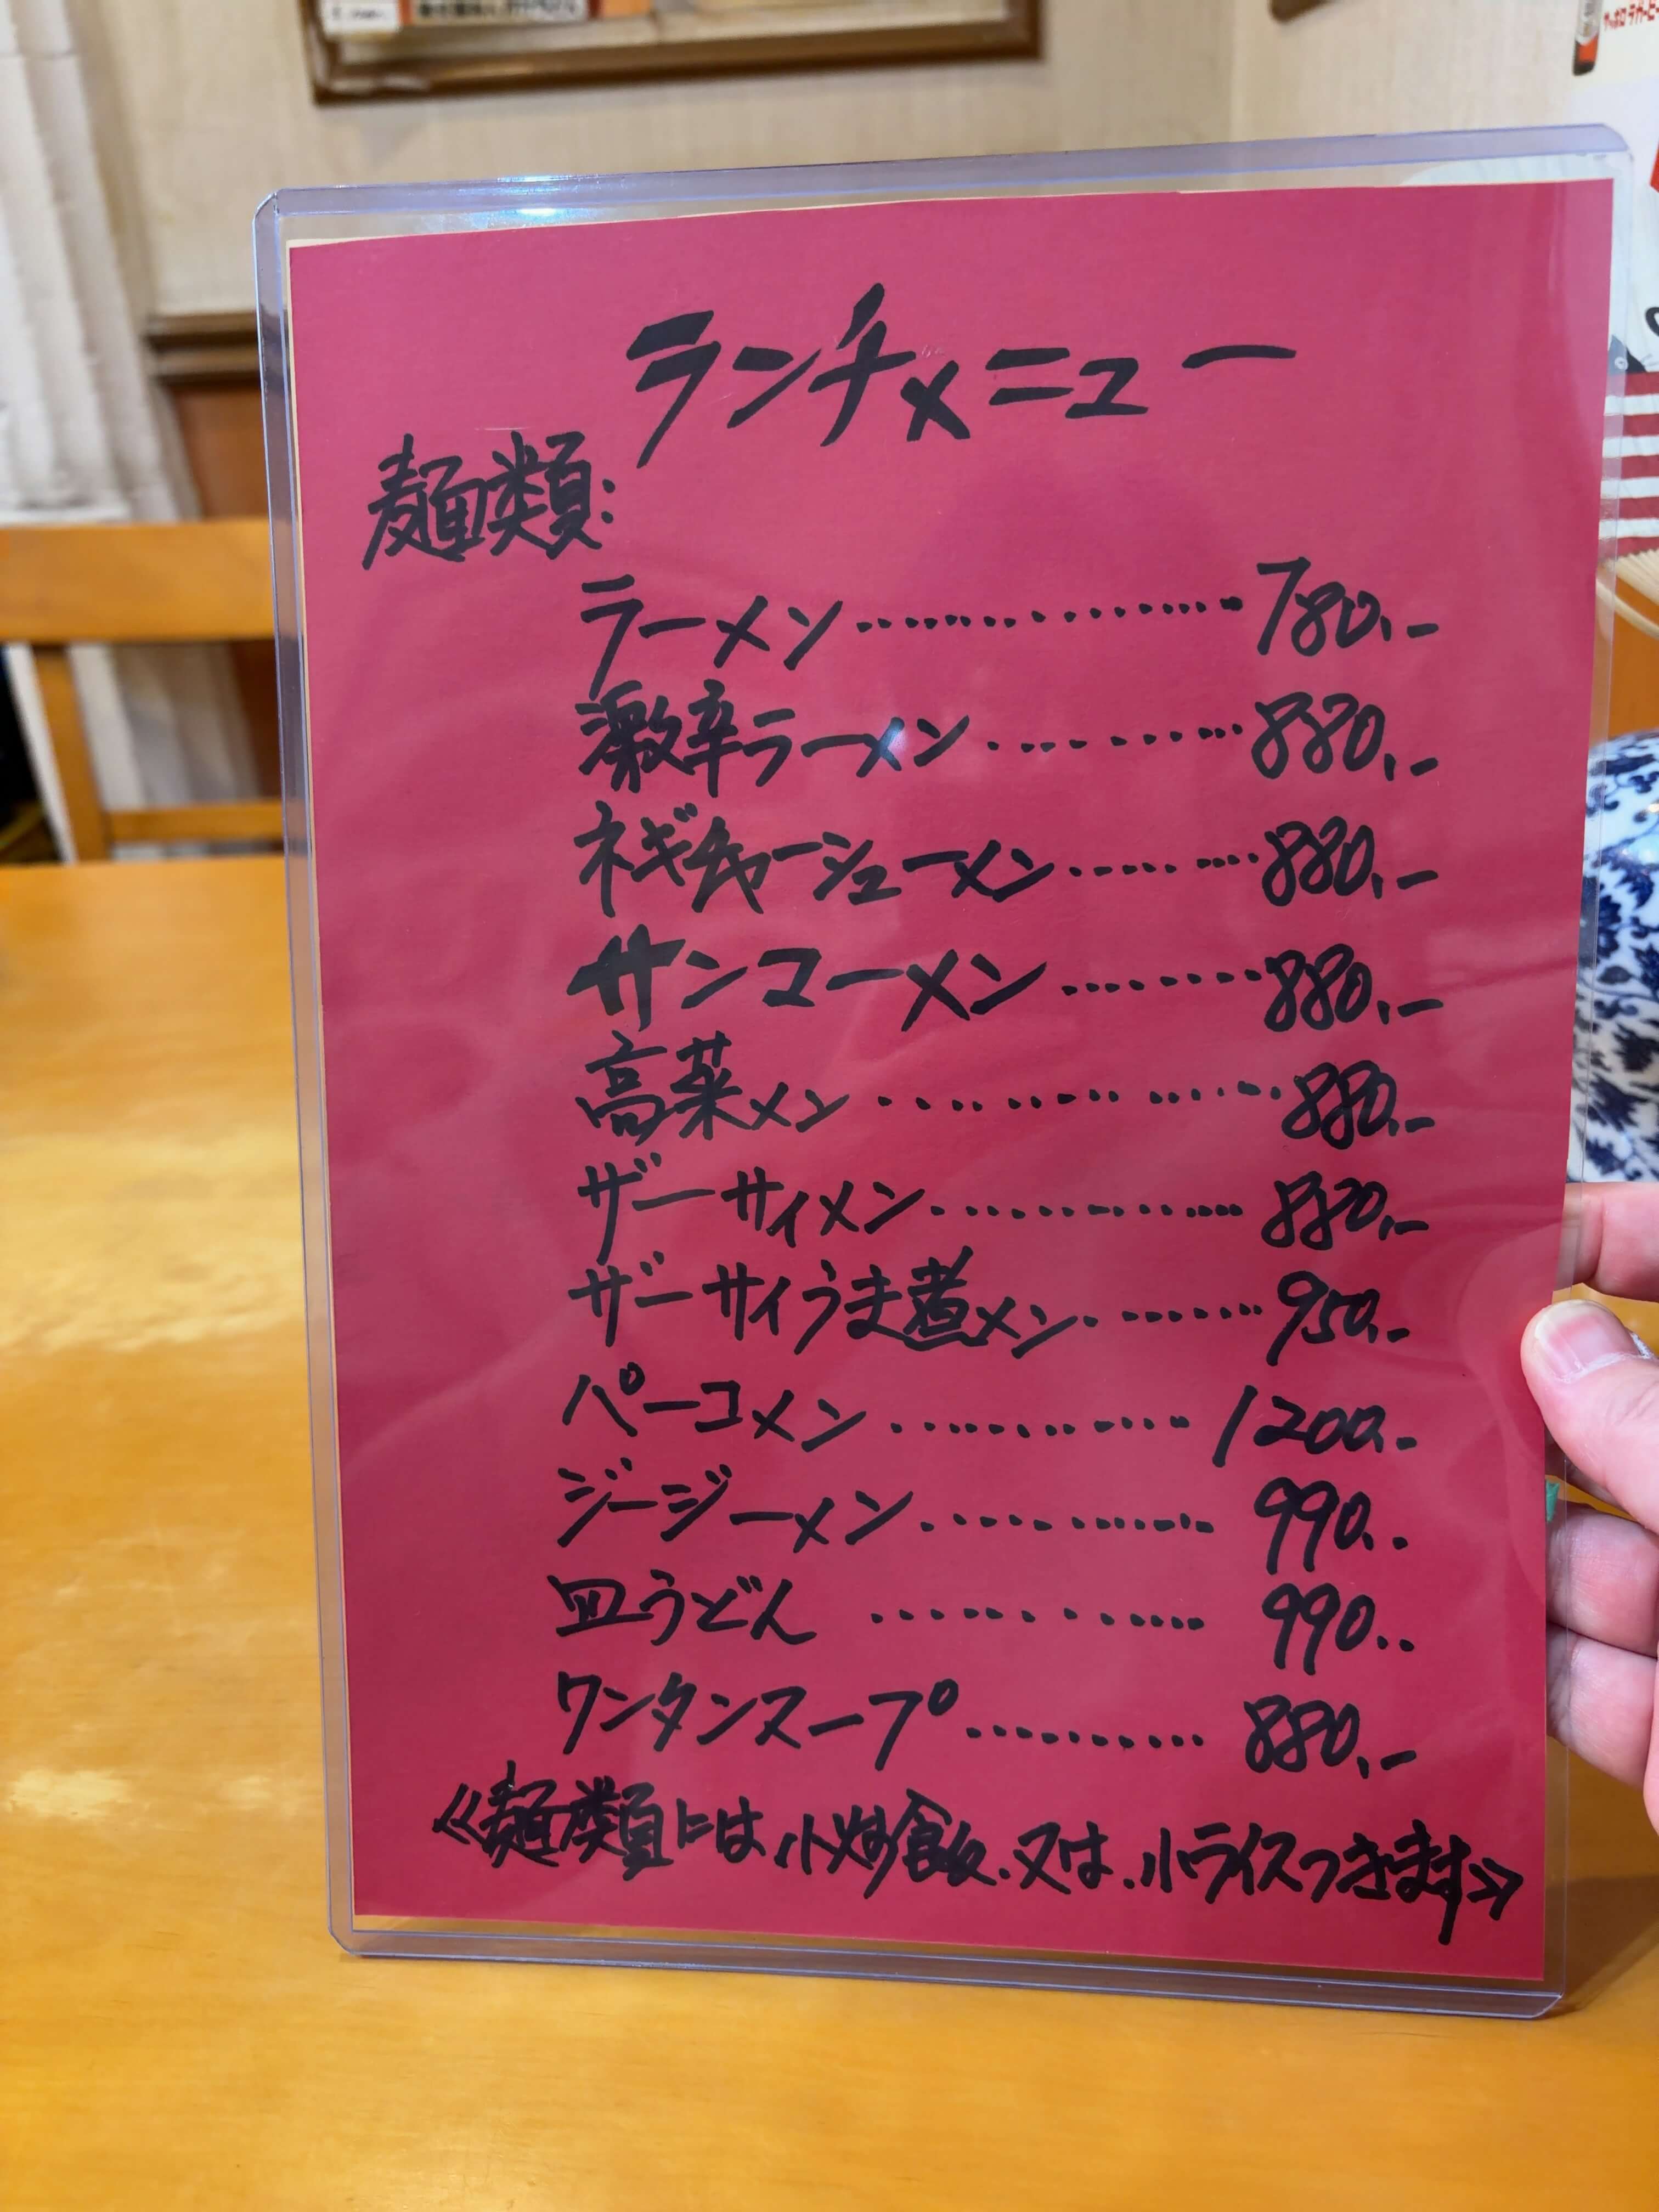 ランチメニュー
麺類:
ラーメン……………780.-
激辛ラーメン…………880.-
ネギチャーシューメン………880.-
サンマーメン………880.-
高菜メン……………880.-
ザーサイメン……………880.-
ザーサイうま煮メン………950.-
パーコメン…………1200.-
ジージーメン…………990..
皿うどん…………990..
ワンタンスープ…………880.-
≪麺類には、小炒飯、又は、小ライスつきます≫